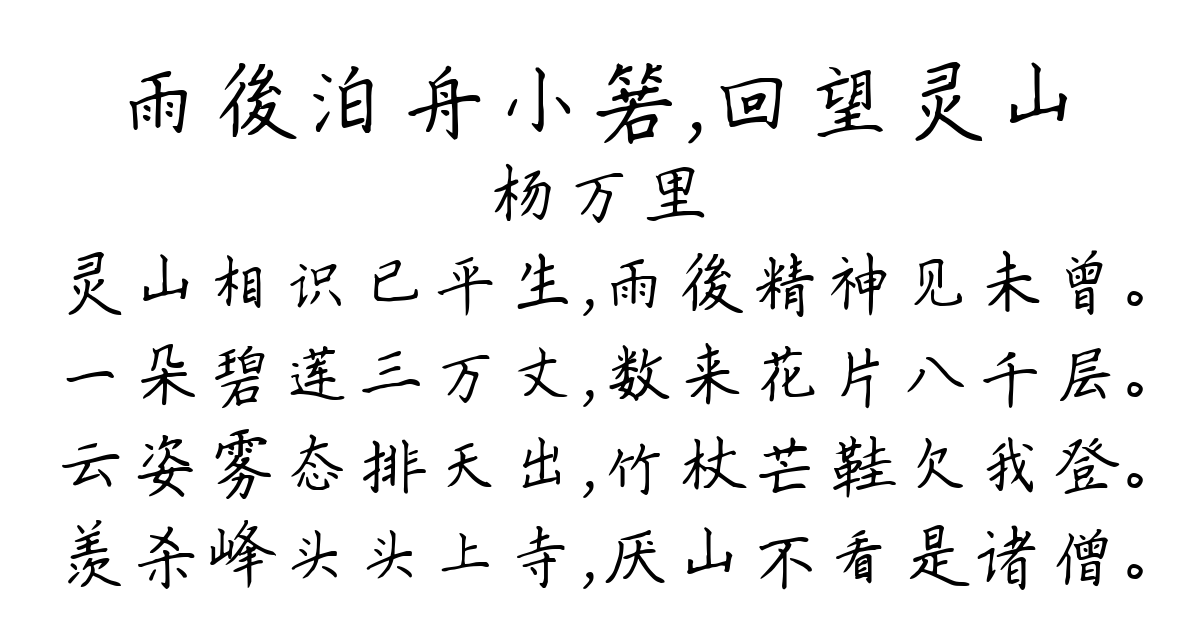 雨後泊舟小箬,回望灵山
杨万里
灵山相识已平生,雨後精神见未曾。
一朵碧莲三万丈,数来花片八千层。
云姿雾态排天出,竹杖芒鞋欠我登。
羡杀峰头头上寺,厌山不看是诸僧。